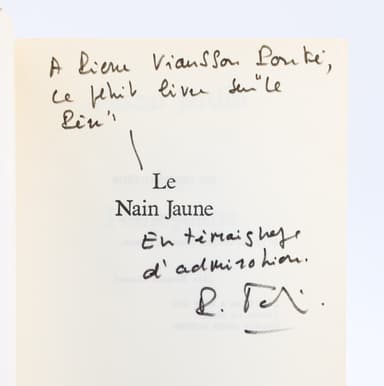 A Pierre Viansson Ponté,
ce petit livre sur "Le
Père"
Le
Nain Jaune
En témoignage
d'admiration.